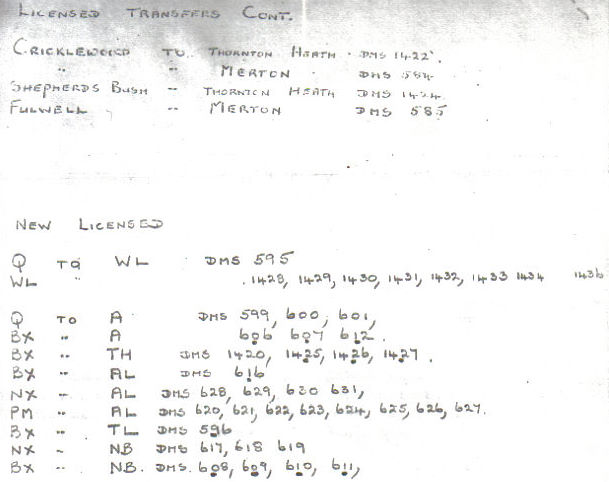 LICENSED TRANSFERS CONT.
CRICKLEWOOD TO THORNTON HEATH DMS 1422.
" " MERTON DMS 584
SHEPHERDS BUSH " THORNTON HEATH DMS 1424
FULWELL " MERTON DMS 585
NEW LICENSED
Q TO WL DMS 595
WL " 1428, 1429, 1430, 1431, 1432, 1433 1434 1436
Q TO A DMS 599, 600, 601,
BX " A 606 607 612.
BX " TH DMS 1420, 1425, 1426, 1427.
BX " AL DMS 616
NX " AL DMS 628, 629, 630 631,
PM " AL DMS 620, 621, 622, 623, 624, 625, 626, 627.
BX " TL DMS 596
NX " NB DMS 617, 618 619
BX " NB. DMS. 608, 609, 610, 611,